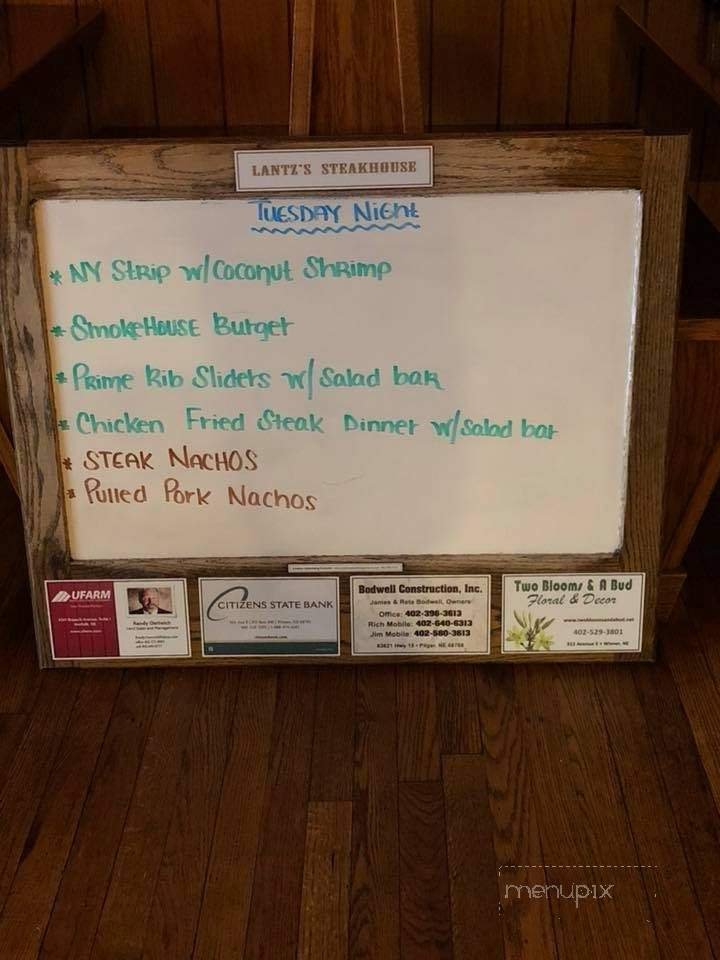 LANTZ'S STEAKHOUSE
TUESDAY NIGHT
* NY STRIP w/Coconut Shrimp
* SmokeHOUSE Burger
* Prime Rib Sliders w/ Salad bar
* Chicken Fried Steak Dinner w/salad bar
* STEAK NACHOS
* Pulled Pork Nachos
UFARM
Randy Oertwich
CITIZENS STATE BANK
Bodwell Construction, Inc.
James & Reta Bodwell, Owners
Office: 402-396-3613
Rich Mobile: 402-640-6313
Jim Mobile: 402-580-3613
83621 Hwy 15 • Pilger, NE 68768
Two Blooms & A Bud
Floral & Decor
www.twobloomsandabud.net
402-529-3801
menupix